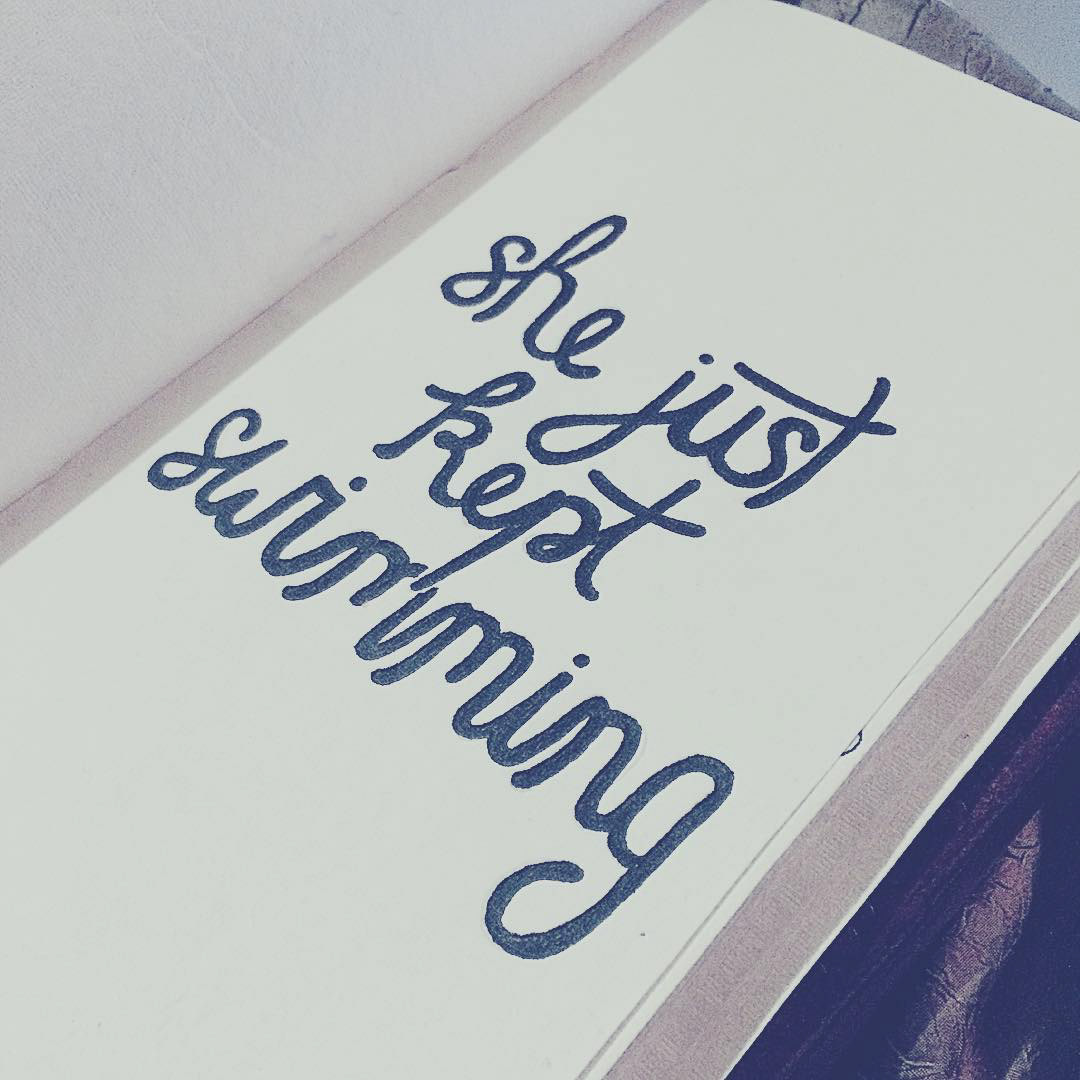 she just
kept
swimming